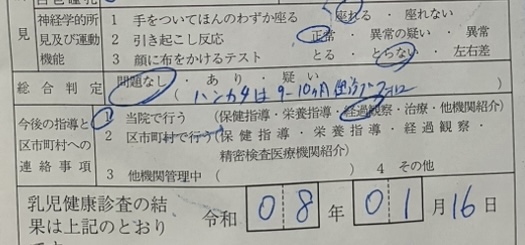 見 神経学的所見及び運動機能
1 手をついてほんのわずか座る 座れる ・ 座れない
2 引き起こし反応 正常 ・ 異常の疑い ・ 異常
3 顔に布をかけるテスト とる ・ とらない ・ 左右差
総合判定 問題なし ・ あり ・ 疑い
( ハンカチは 9-10ヶ月
今後の指導と区市町村への連絡事項
1 当院で行う (保健指導・栄養指導・経過観察・治療・他機関紹介)
2 区市町村で行う(保健指導・栄養指導・経過観察・
精密検査医療機関紹介)
3 他機関管理中 ( ) 4 その他
乳児健康診査の結
果は上記のとおり
令和 08 年 01 月 16 日